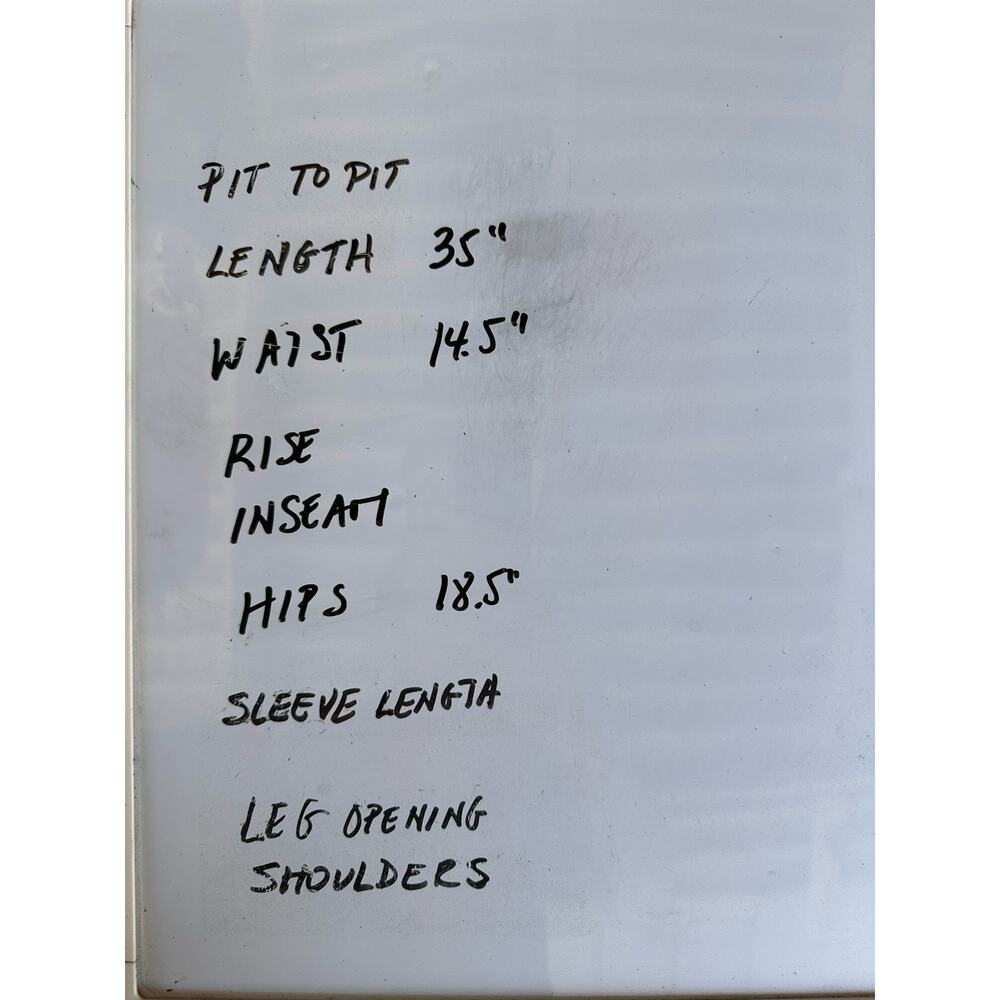 PIT TO PIT
LENGTH 35"
WAIST 14.5"
RISE
INSEAM
HIPS 18.5"
SLEEVE LENGTH
LEG OPENING
SHOULDERS